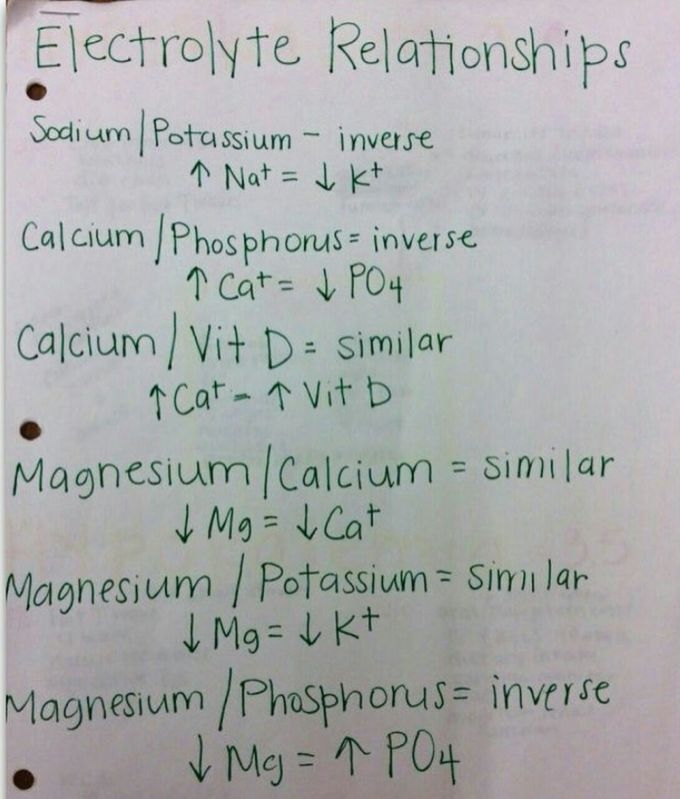 Electrolyte Relationships
Sodium/Potassium - inverse
↑ Na+ = ↓ K+
Calcium/Phosphorus = inverse
↑ Ca+ = ↓ PO4
Calcium/Vit D = similar
↑ Ca+ - ↑ Vit D
Magnesium/Calcium = similar
↓ Mg = ↓ Ca+
Magnesium/Potassium = similar
↓ Mg = ↓ K+
Magnesium/Phosphorus = inverse
↓ Mg = ↑ PO4